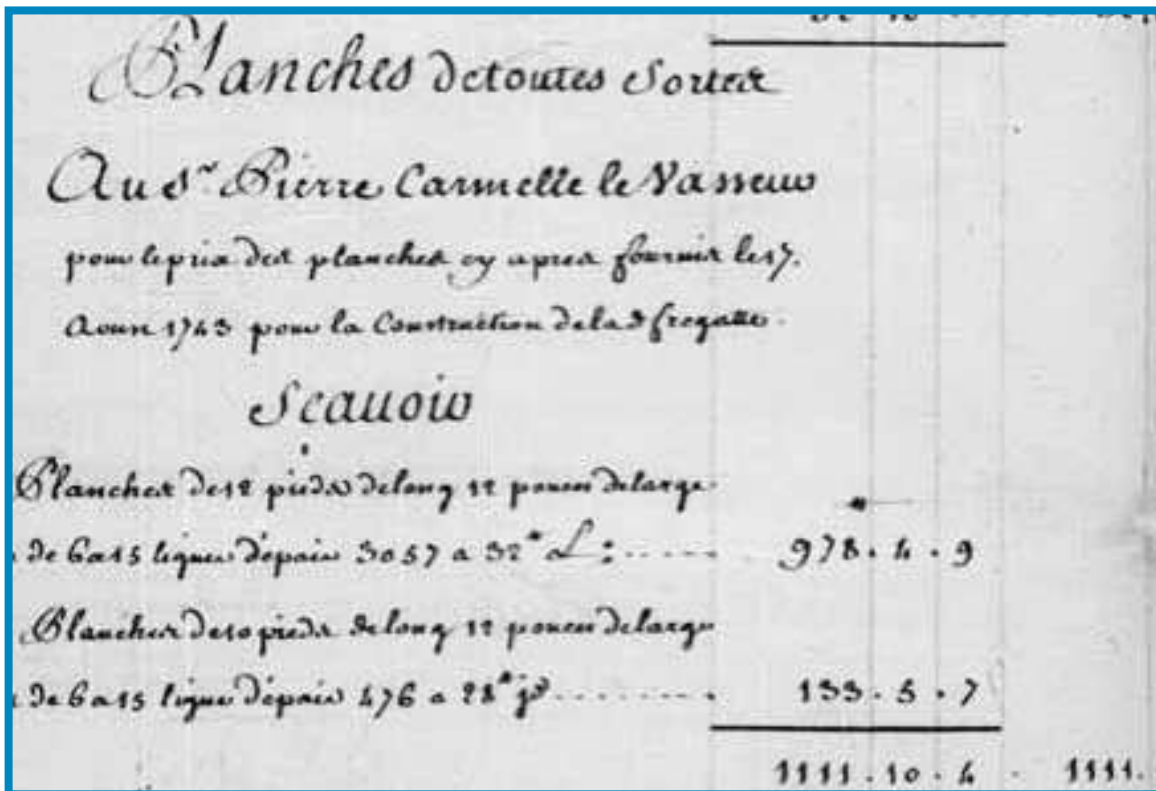 Planches detoutes Sortes
Au Sr. Pierre Carmelle le Vasseur
pour le prix des planches cy apres fournis le 17.
Aoust 1743 pour la Construction de lad fregatte.
Scauoir
Planches de 12 pieds delong 12 pouces delarge
de 6 a 15 lignes d'epais 3057 a 32# L: ...... 978 . 4 . 9
Planches de 10 pieds delong 12 pouces delarge
de 6 a 15 ligne d'epais 476 a 28# ........ 133 . 5 . 7
1111 . 10 . 4 . 1111.